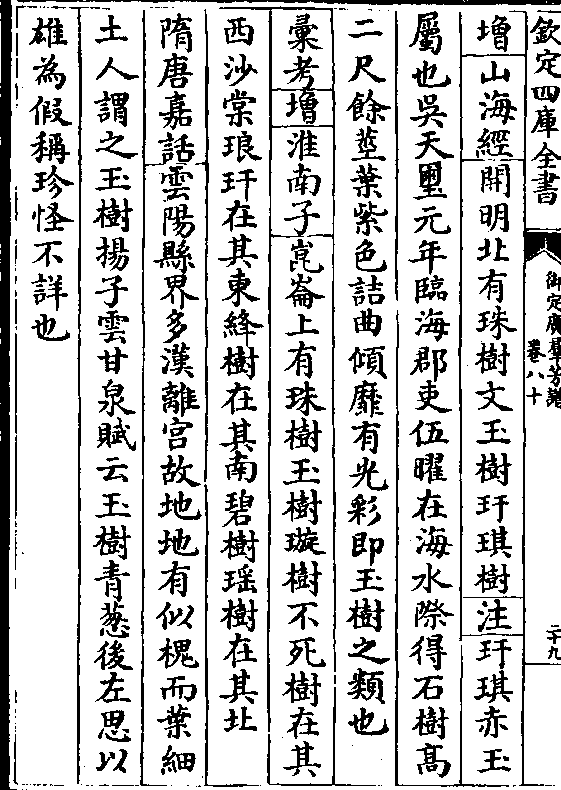 欽定四庫全書
御定廣羣芳譜
卷八十
二十九
增山海經開明北有珠樹文玉樹玗琪樹注玗琪赤玉
屬也吳天璽元年臨海郡吏伍曜在海水際得石樹高
二尺餘莖葉紫色詰曲傾靡有光彩即玉樹之類也
彙考增淮南子崑崙上有珠樹玉樹璇樹不死樹在其
西沙棠琅玕在其東絳樹在其南碧樹瑶樹在其北
隋唐嘉話雲陽縣界多漢離宮故地地有似槐而葉細
土人謂之玉樹揚子雲甘泉賦云玉樹青蔥後左思以
雄為假稱珍怪不詳也